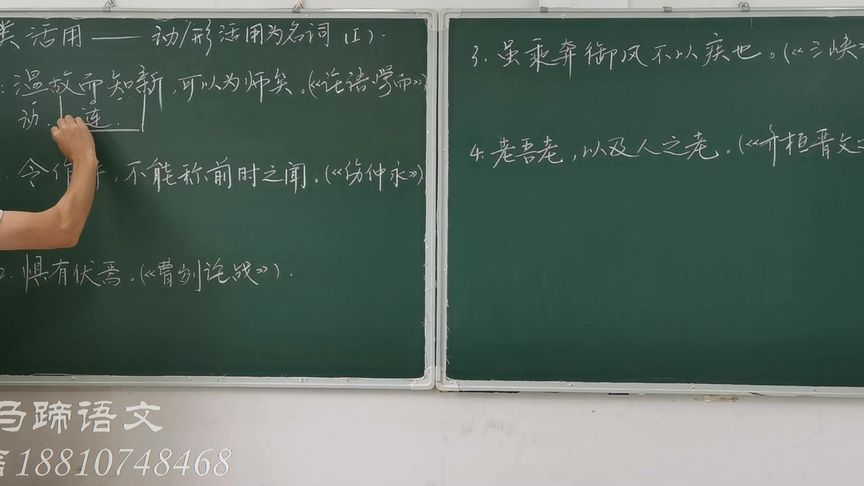 类活用——动/形活用为名词(I).
:温故而知新,可以为师矣.(《论语·学而》)
动. 连.
令作诗,不能称前时之闻.(《伤仲永》)
2.惧有伏焉.(《曹刿论战》).
3.虽乘奔御风不以疾也。(《三峡
4.老吾老,以及人之老.(《齐桓晋文之
马蹄语文
18810748468